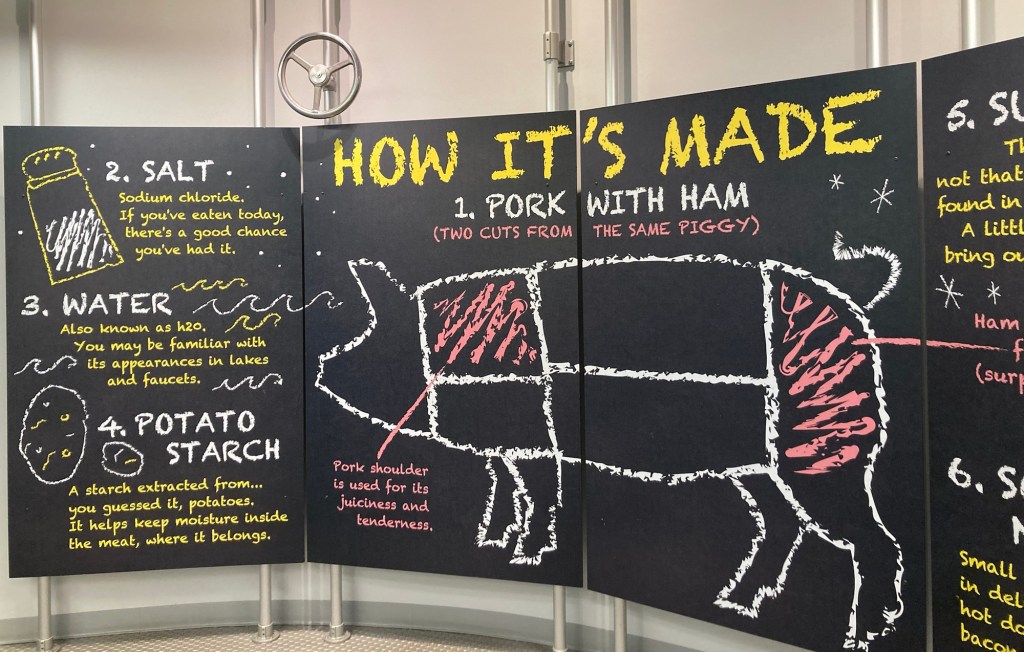 HOW IT'S MADE
1. PORK WITH HAM
(TWO CUTS FROM THE SAME PIGGY)
Pork shoulder
is used for its
juiciness and
tenderness.
2. SALT
Sodium chloride.
If you've eaten today,
there's a good chance
you've had it.
3. WATER
Also known as h2o.
You may be familiar with
its appearances in lakes
and faucets.
4. POTATO
STARCH
A starch extracted from...
you guessed it, potatoes.
It helps keep moisture inside
the meat, where it belongs.
5. SU
Th
not that
found in
A littl
bring ou
Ham
f
(surp
6. S
Small
in del
hot do
bacon